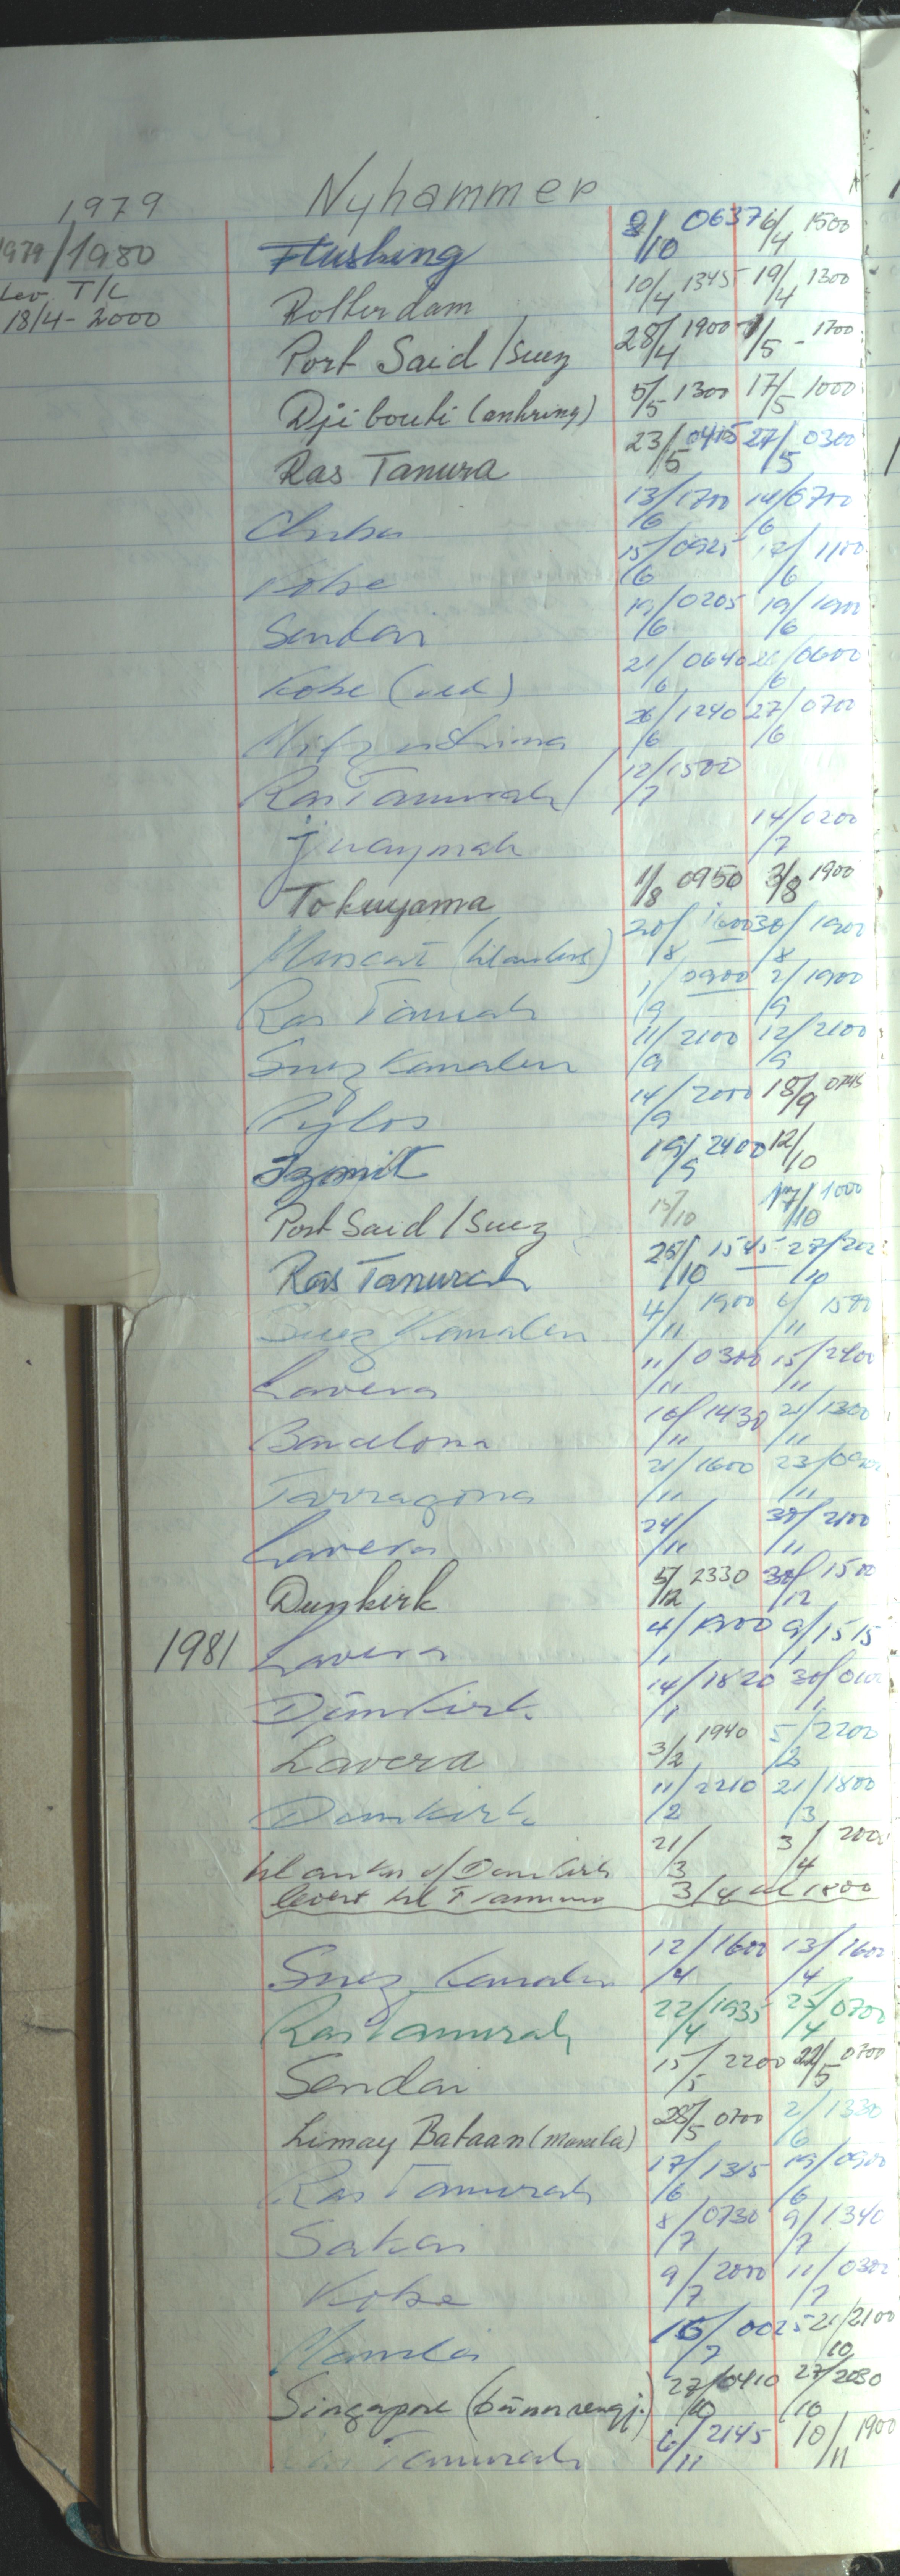 1979 Nyhammer
1979/1980 Flushing 8/10 0637 6/4 1500
Lev. T/C Rotterdam 10/4 1345 19/4 1300
18/4 - 2000 Port Said / Suez 28/4 1900 1/5 - 1700
Djibouti (ankring) 5/5 1300 17/5 1000
Ras Tanura 23/5 0415 27/5 0300
Chiba 13/6 1700 14/6 0700
Kobe 15/6 0925 17/6 1100
Sendai 19/6 0205 19/6 1900
Kobe (red) 21/6 0640 26/6 0600
Mitzushima 26/6 1240 27/6 0700
Ras Tanurah / 12/7 1500
Juaymah 14/7 0200
Tokuyama 1/8 0950 3/8 1900
Muscat (til ankers) 20/8 1600 30/8 1900
Ras Tanurah 1/9 0900 2/9 1900
Suez Kanalen 11/9 2100 12/9 2100
Pylos 14/9 2000 18/9 0745
Izmit 19/9 2400 12/10
Port Said / Suez 15/10 17/10 1000
Ras Tanurah 25/10 1545 27/10
Suez Kanalen 4/11 1900 6/11 1500
Lavera 11/11 0300 15/11 2400
Barcelona 16/11 1430 21/11 1300
Tarragona 21/11 1600 23/11
Lavera 24/11 30/11 2100
Dunkirk 5/12 2330 30/12 1500
1981 Lavera 4/1 1900 9/1 1515
Dunkirk 14/1 1820 30/1
Lavera 3/2 1940 5/2 2200
Dunkirk 11/2 2210 21/3 1800
til ankers v/Dunkirk 21/3 3/4 2000
levert til 3/4 kl 1800
Suez Kanalen 12/4 1600 13/4 1600
Ras Tanurah 22/4 1935 25/4 0700
Sendai 15/5 2200 22/5 0700
Limay Bataan (Manila) 28/5 0700 2/6 1330
Ras Tanurah 17/6 1315 19/6 0900
Sakai 8/7 0730 9/7 1340
Kobe 9/7 2000 11/7 0300
Manila 16/7 0025 21/10 2100
Singapore (bunnrengj.) 27/10 0410 27/10 2030
Ras Tanurah 6/11 2145 10/11 1900